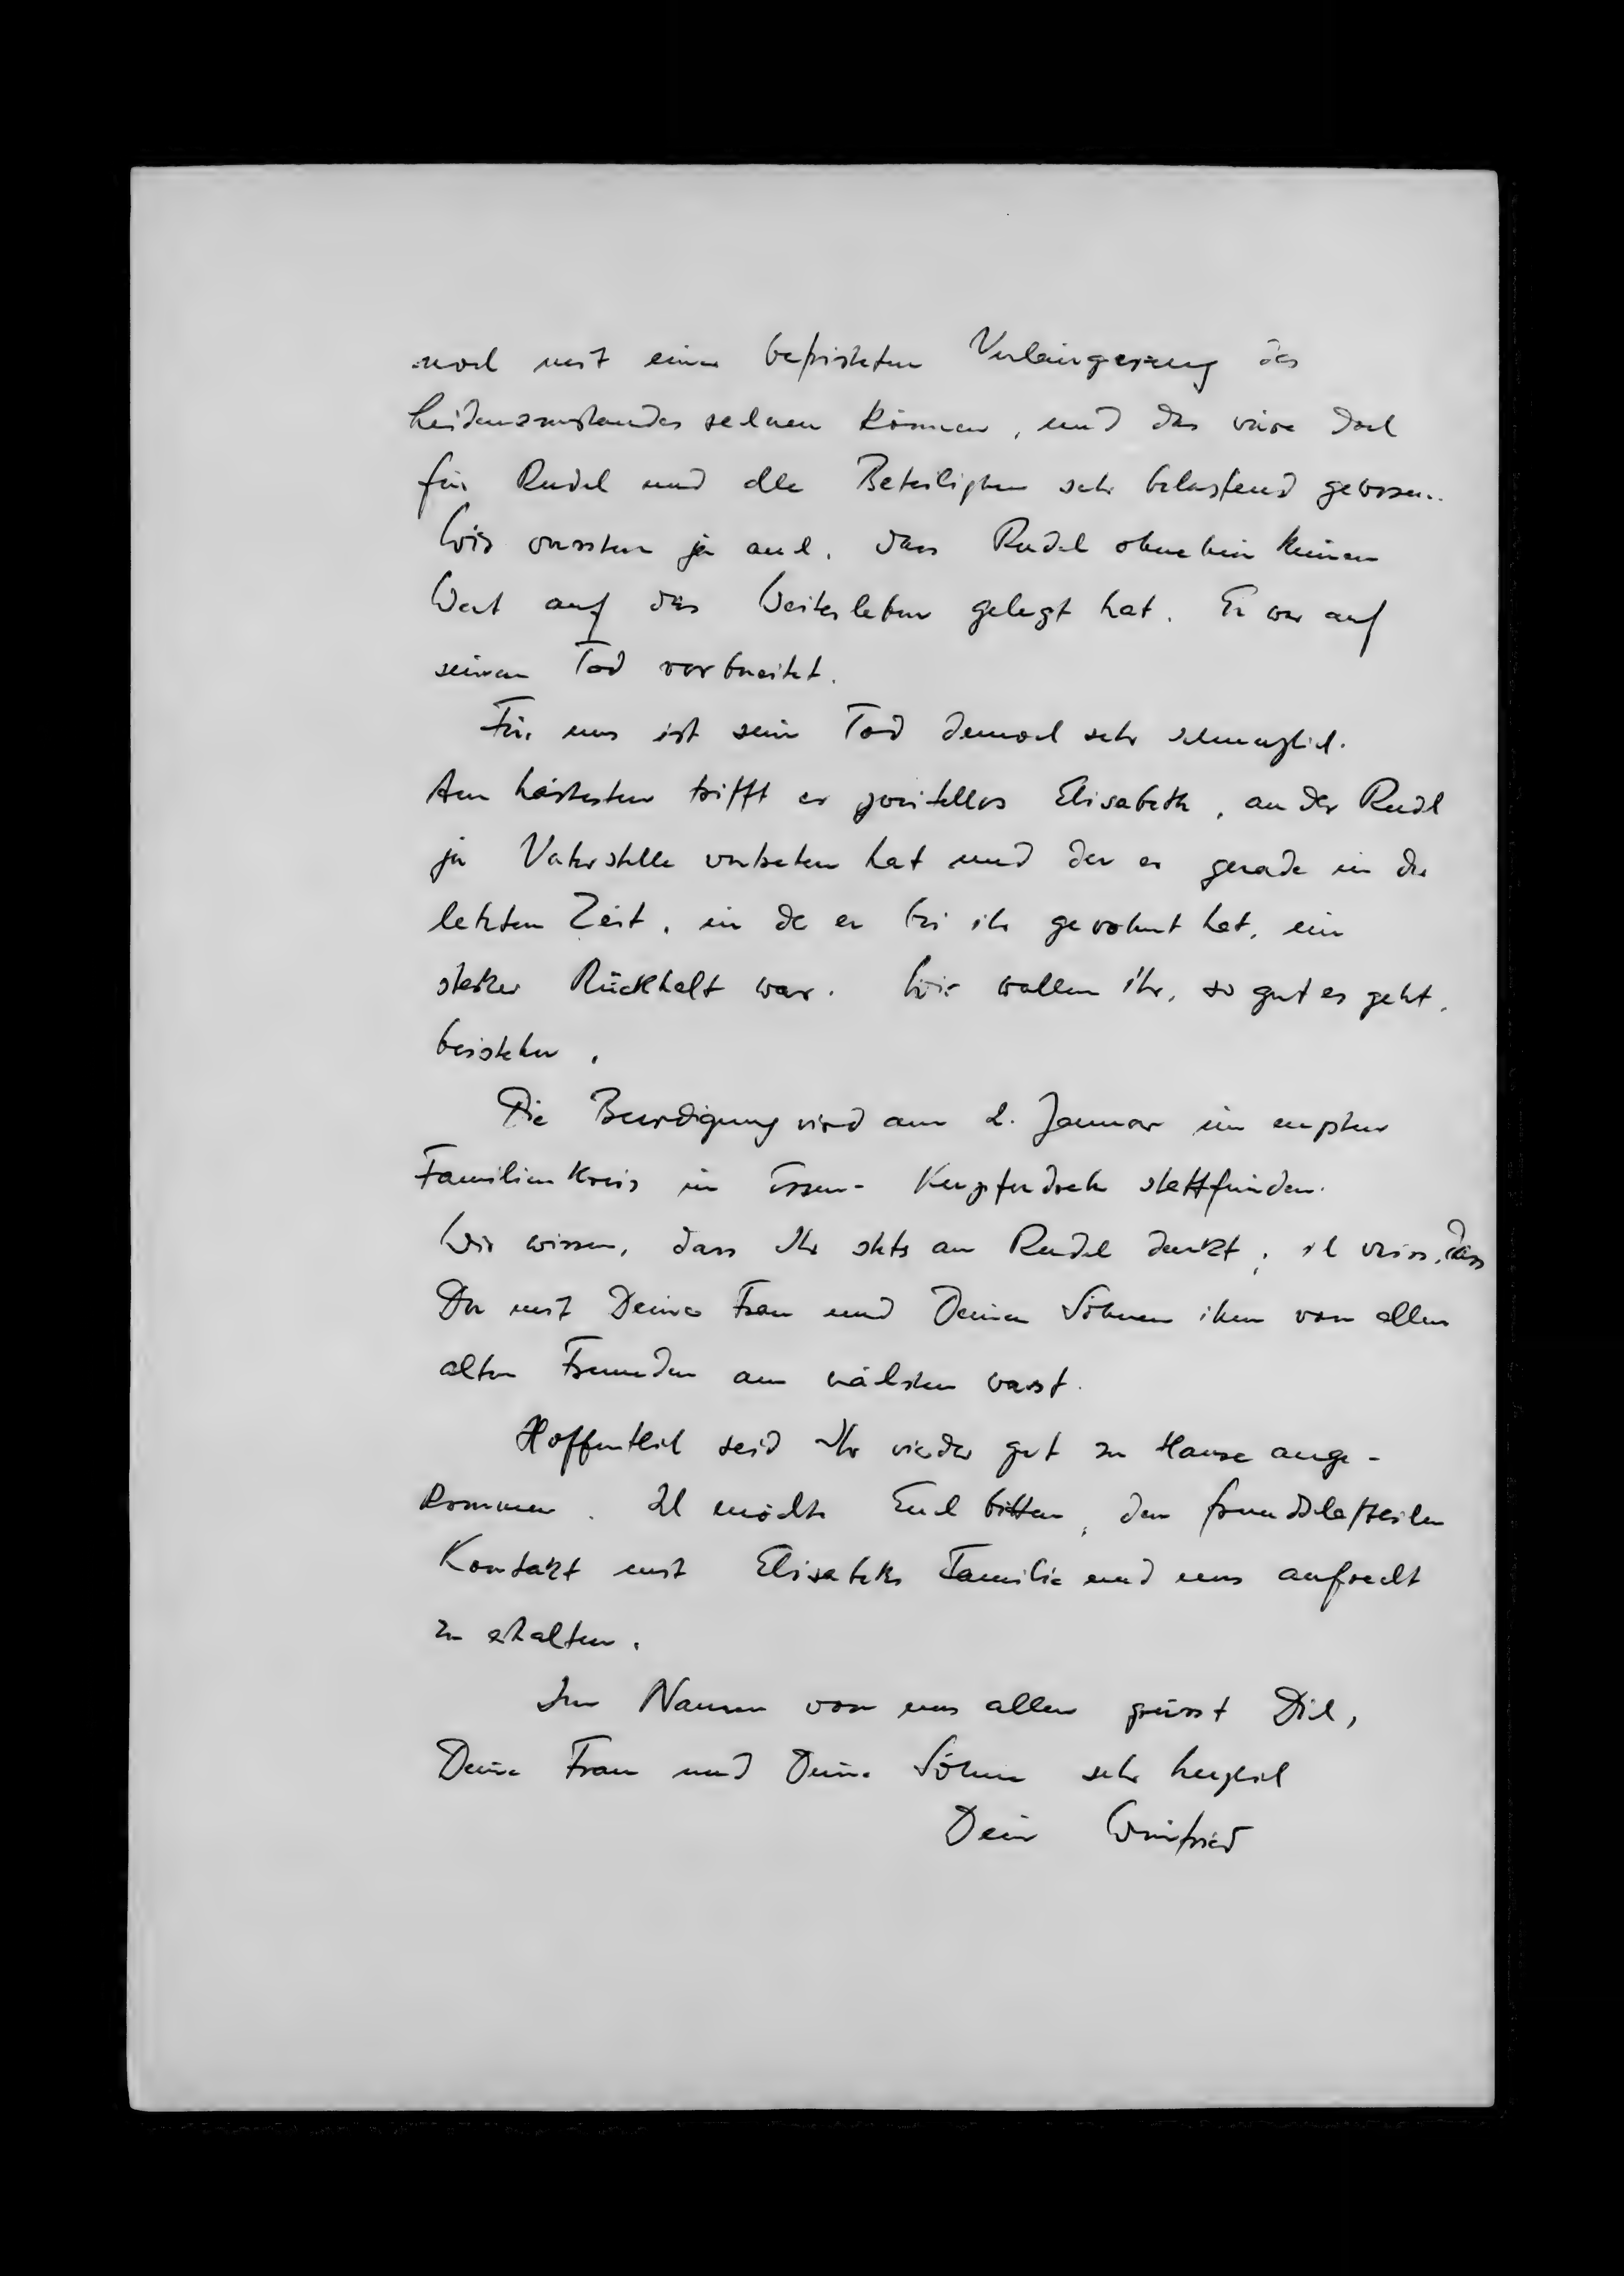 noch mit einer befristeten Verlängerung des
Leidenszustandes rechnen können, und das wäre doch
für Rudel und alle Beteiligten sehr belastend gewesen.
Wir wussten ja auch, dass Rudel ohnehin keinen
Wert auf das Weiterleben gelegt hat. Er war auf
seinen Tod vorbereitet.
Für uns ist sein Tod dennoch sehr schmerzlich.
Am härtesten trifft er zweifellos Elisabeth, an der Rudel
ja Vaterstelle vertreten hat und der er gerade in der
letzten Zeit, in der er bei ihr gewohnt hat, ein
starker Rückhalt war. Wir wollen ihr, so gut es geht,
beistehen.
Die Beerdigung wird am 2. Januar im engsten
Familienkreis in Essen-Kupferdreh stattfinden.
Wir wissen, dass Ihr stets an Rudel denkt; ich weiss, dass
Du mit Deiner Frau und Deinen Söhnen ihm von allen
alten Freunden am nächsten warst.
Hoffentlich seid Ihr wieder gut zu Hause ange-
kommen. Ich möchte Euch bitten, den freundschaftlichen
Kontakt mit Elisabeths Familie und uns aufrecht
zu erhalten.
Im Namen von uns allen grüsst Dich,
Deine Frau und Deine Söhne sehr herzlich
Dein Winfried